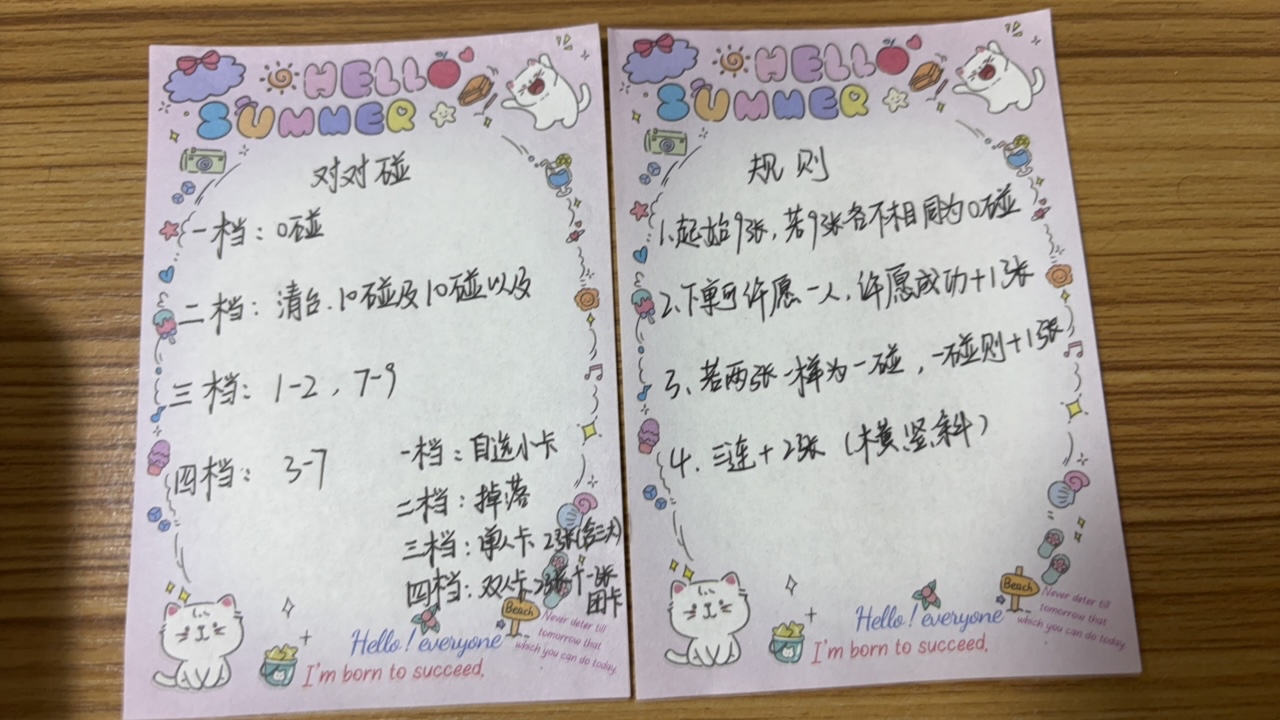 HELLO
SUMMER
对对碰
一档：0碰
二档：清台.10碰及10碰以及
三档：1-2，7-9
四档：3-7
一档：自选小卡
二档：掉落
三档：单人卡 2张(含三大)
四档：双人卡 2张+一张
团卡
Beach
Hello! everyone
I'm born to succeed,
Never deter till
tomorrow that
which you can do today.
HELLO
SUMMER
规则
1.起始9张，若9张各不相同为0碰
2.下单可许愿一人，许愿成功+1张
3、若两张一样为一碰，一碰则+1张
4、三连+2张（横竖斜）
Beach
Hello! everyone
I'm born to succeed,
Never deter till
tomorrow that
which you can do today.